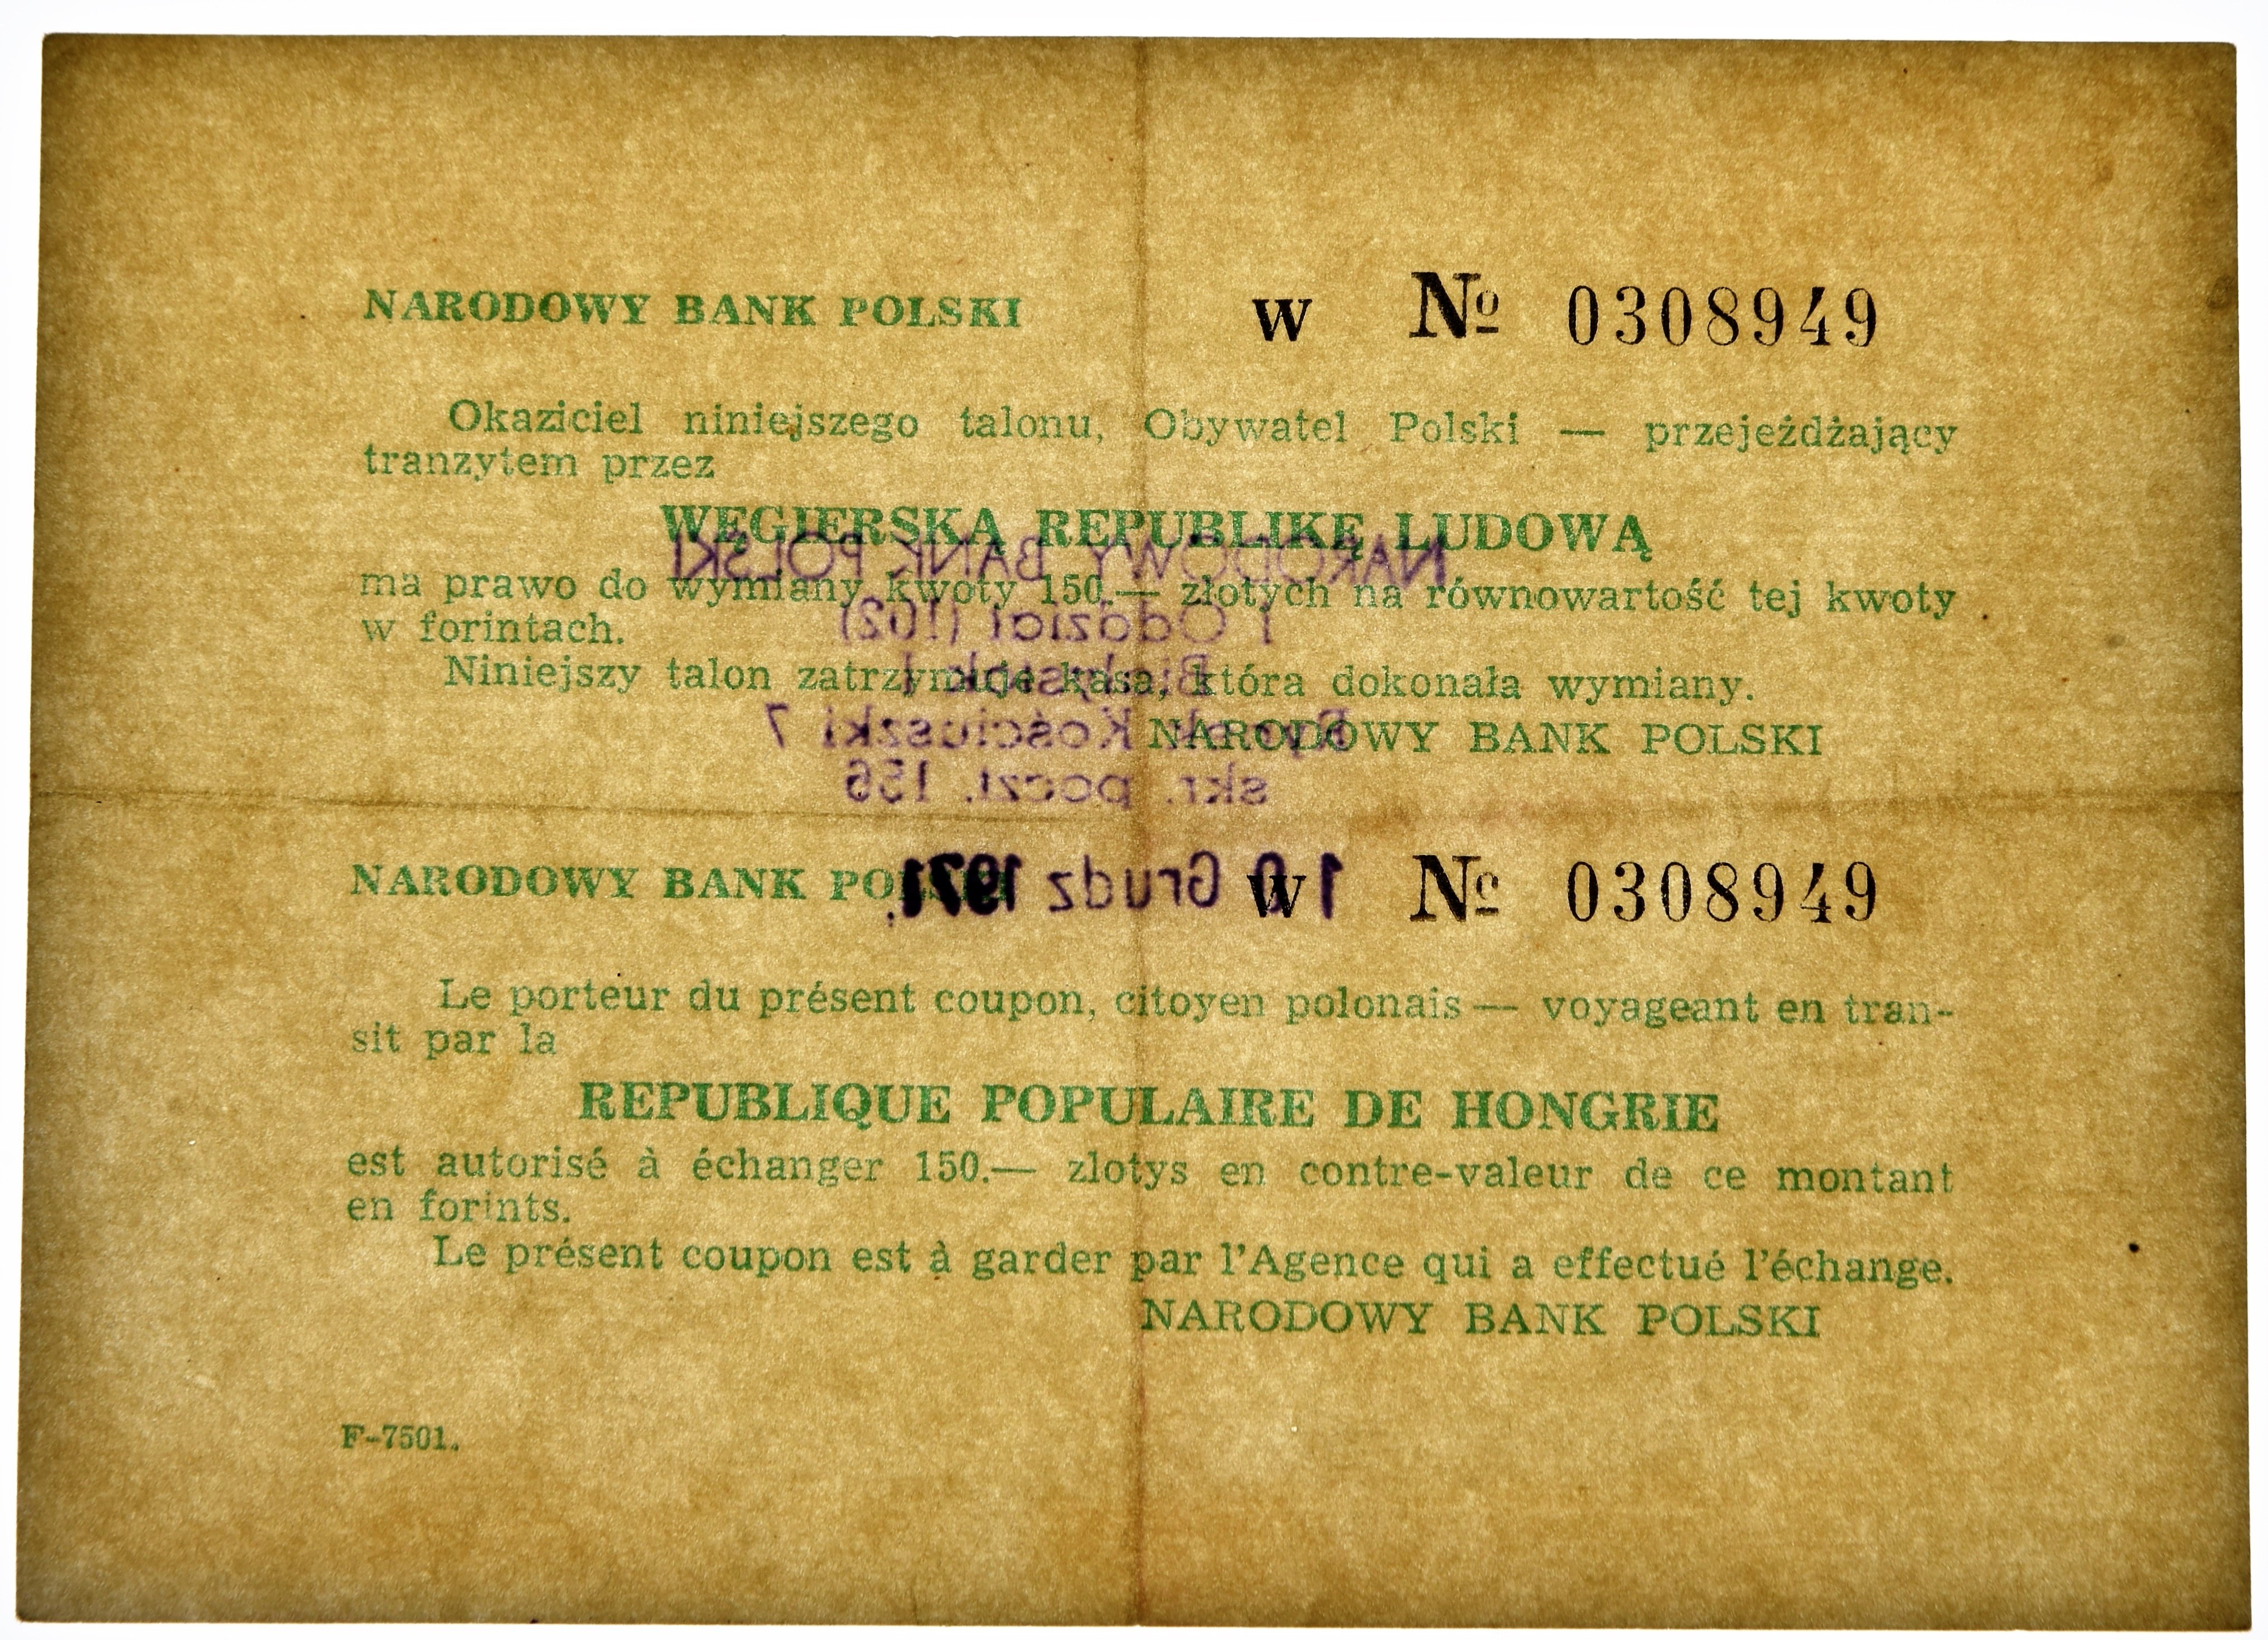 NARODOWY BANK POLSKI W № 0308949
Okaziciel niniejszego talonu, Obywatel Polski — przejeżdżający
tranzytem przez
WĘGIERSKĄ REPUBLIKĘ LUDOWĄ
NARODOWY BANK POLSKI
ma prawo do wymiany kwoty 150.— złotych na równowartość tej kwoty
I Oddział (102)
w forintach.
Niniejszy talon zatrzymuje kasa, która dokonała wymiany.
Białymstoku
Rynek Kościuszki 7
NARODOWY BANK POLSKI
skr. poczt. 156
NARODOWY BANK POLSKI W № 0308949
10 Grudz 1971
Le porteur du présent coupon, citoyen polonais — voyageant en tran-
sit par la
REPUBLIQUE POPULAIRE DE HONGRIE
est autorisé à échanger 150.— zlotys en contre-valeur de ce montant
en forints.
Le présent coupon est à garder par l'Agence qui a effectué l'échange.
NARODOWY BANK POLSKI
F-7501.